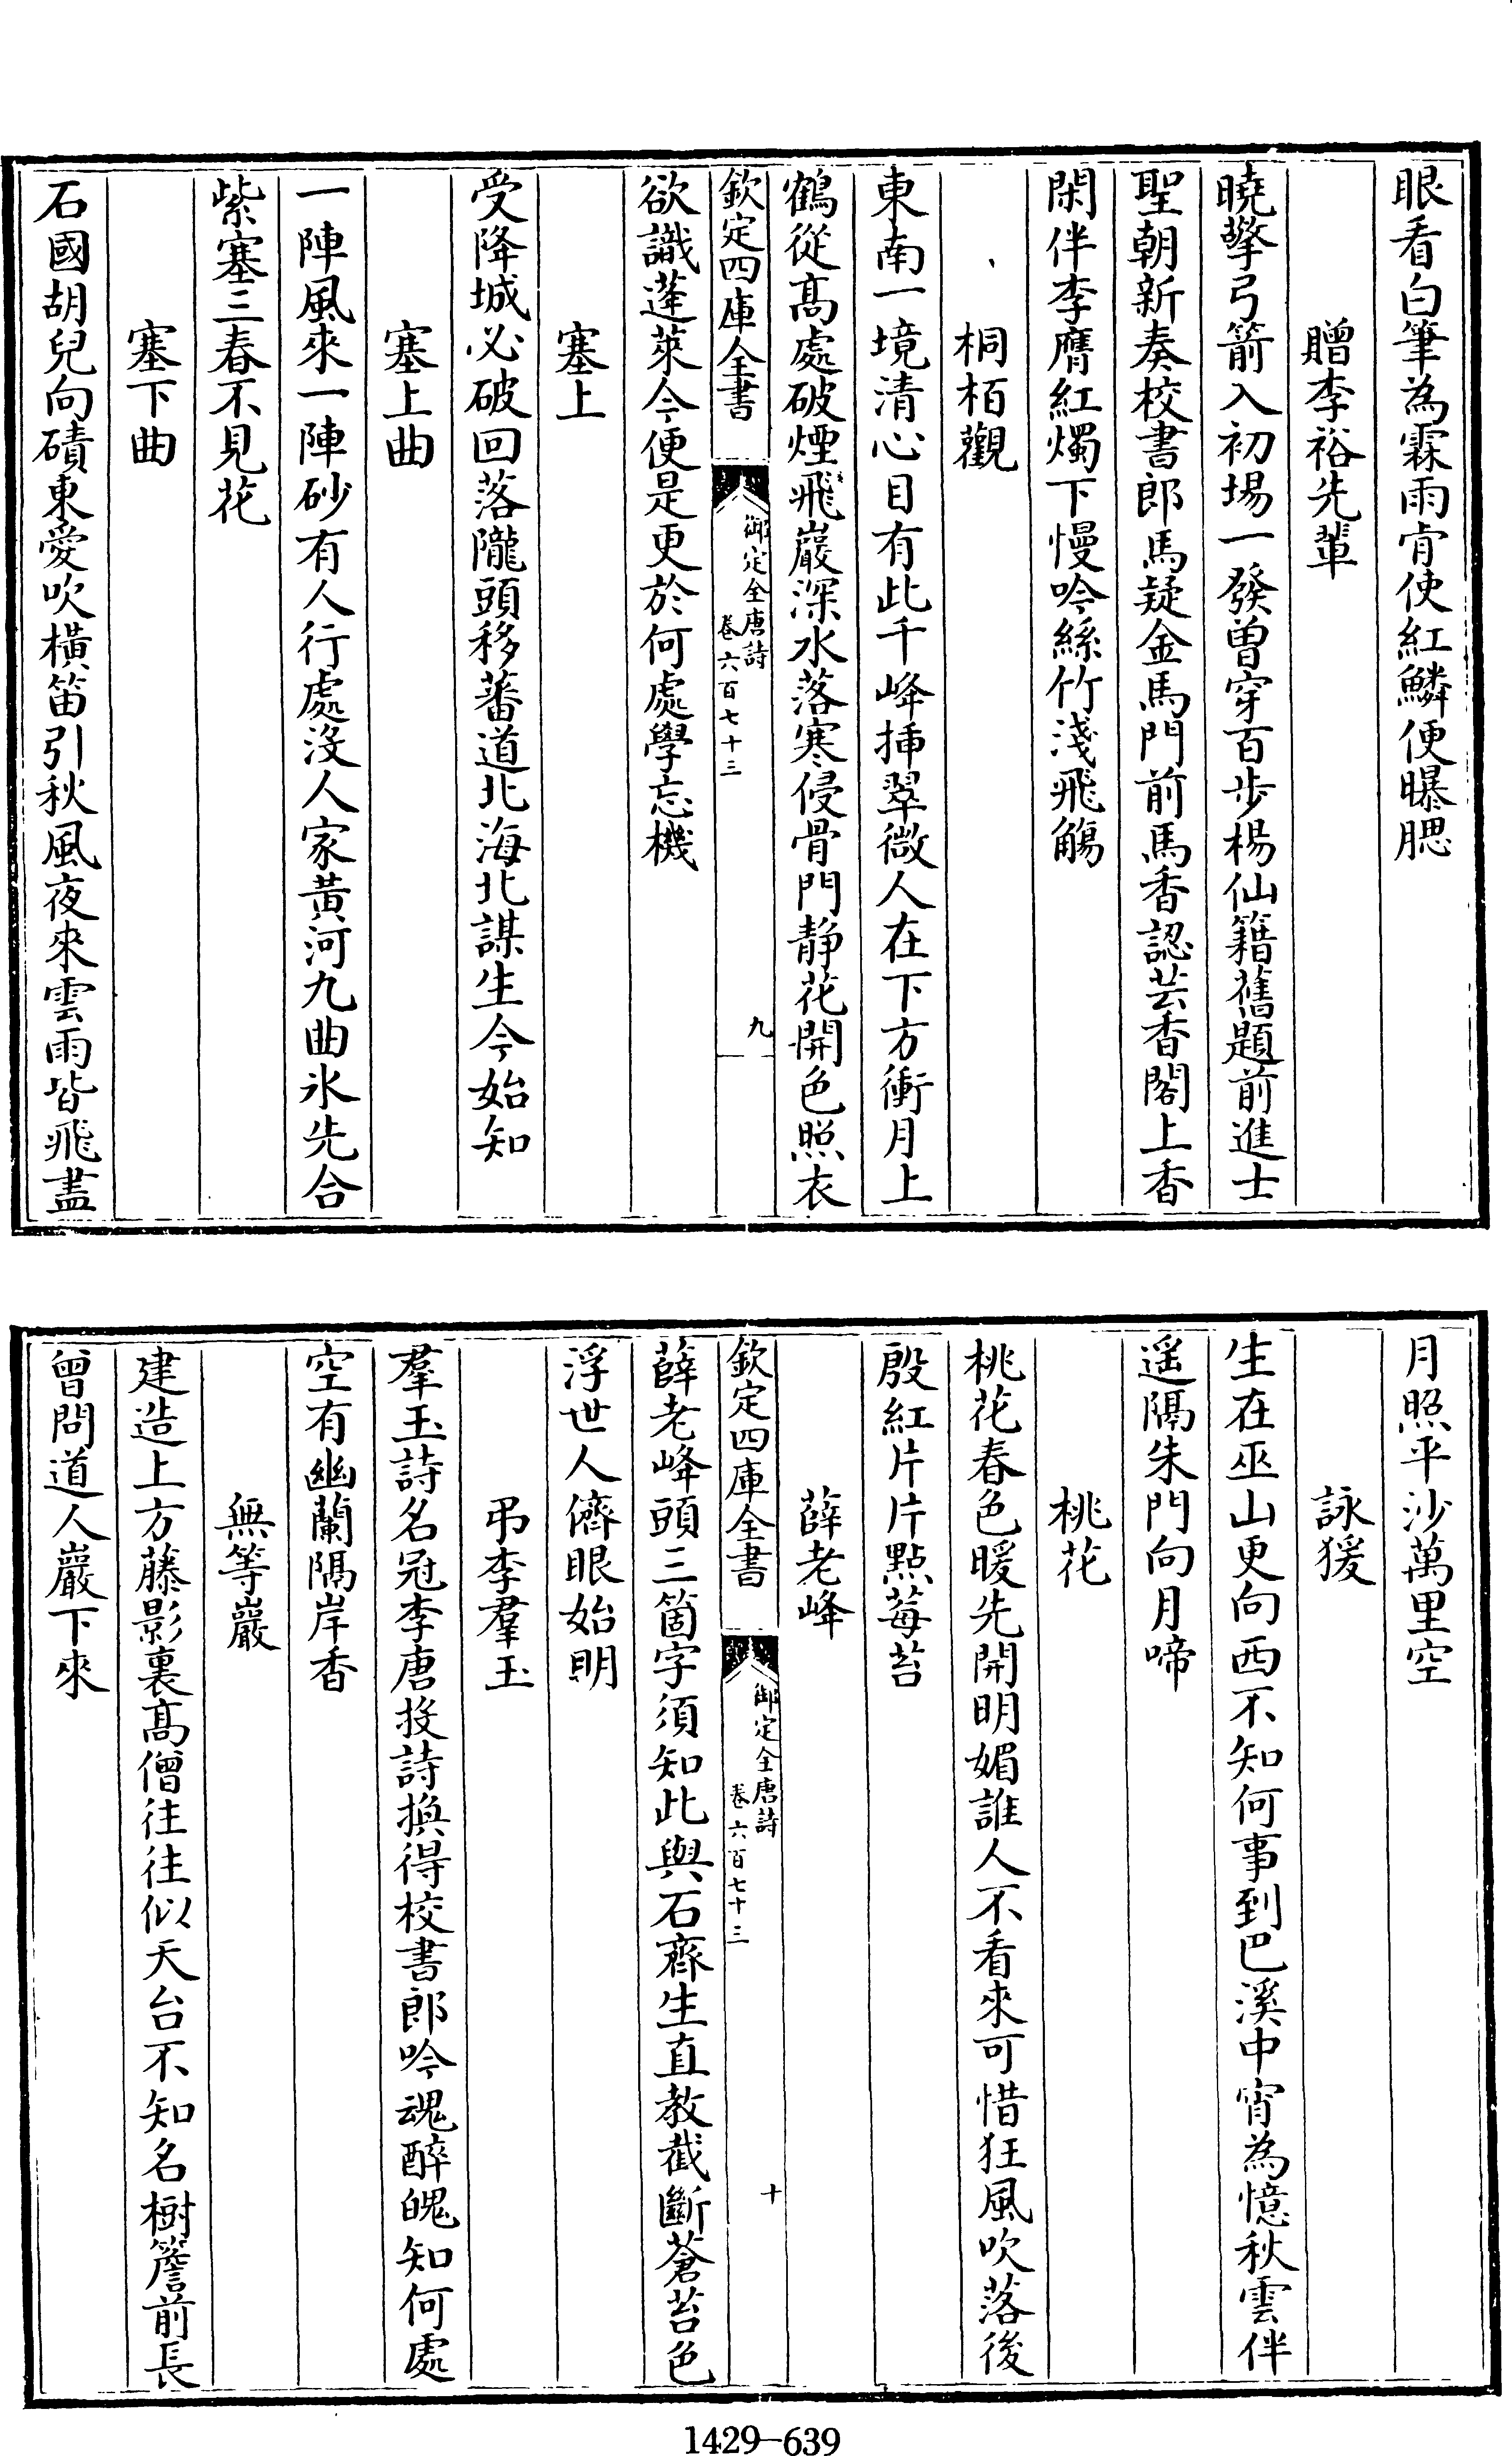 眼看白筆為霖雨肯使紅鱗便曝腮
贈李裕先輩
曉擎弓箭入初場一發曾穿百步楊仙籍舊題前進士
聖朝新奏校書郎馬疑金馬門前馬香認芸香閣上香
閑伴李膺紅燭下慢吟絲竹淺飛觴
桐栢觀
東南一境清心目有此千峰揷翠微人在下方衝月上
鶴從髙處破煙飛巖深水落寒侵骨門静花開色照衣
欽定四庫全書
御定全唐詩
卷六百七十三
九
欲識蓬萊今便是更於何處學忘機
塞上
受降城必破回落隴頭移蕃道北海北謀生今始知
塞上曲
一陣風來一陣砂有人行處沒人家黃河九曲氷先合
紫塞三春不見花
塞下曲
石國胡兒向磧東愛吹橫笛引秋風夜來雲雨皆飛盡
月照平沙萬里空
詠猨
生在巫山更向西不知何事到巴溪中宵為憶秋雲伴
遥隔朱門向月啼
桃花
桃花春色暖先開明媚誰人不看來可惜狂風吹落後
殷紅片片點莓苔
薛老峰
欽定四庫全書
御定全唐詩
卷六百七十三
十
薛老峰頭三箇字須知此與石齊生直教截斷蒼苔色
浮世人儕眼始明
弔李羣玉
羣玉詩名冠李唐投詩換得校書郎吟魂醉魄知何處
空有幽蘭隔岸香
無等巖
建造上方藤影裏髙僧往往似天台不知名樹簷前長
曾問道人巖下來
1429-639